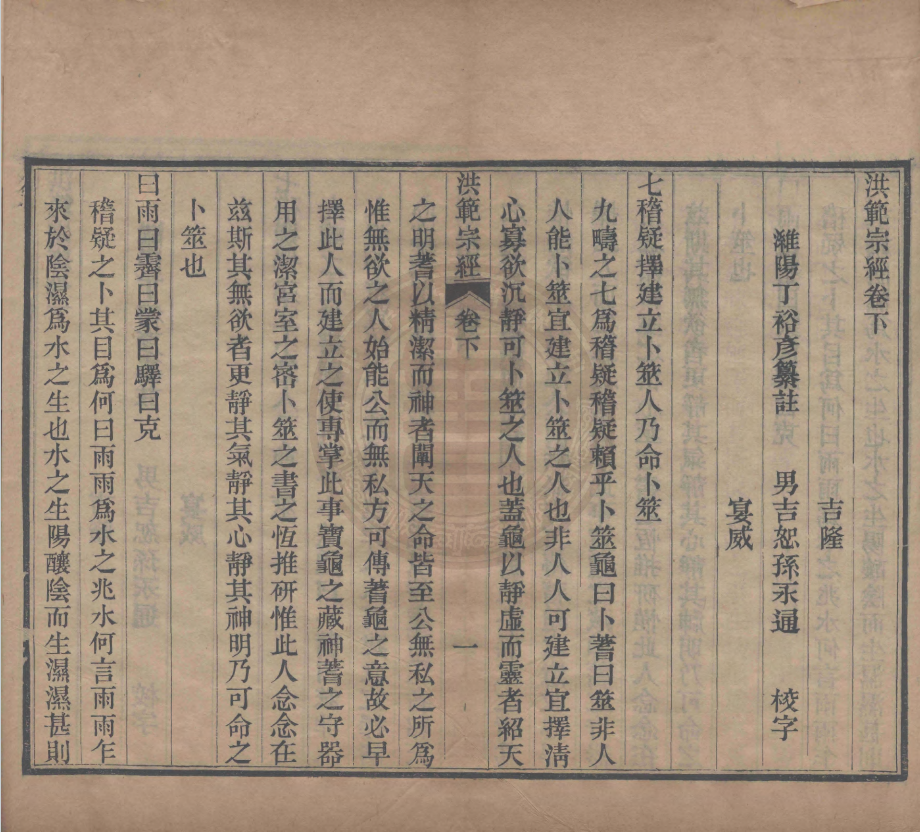 洪範宗經卷下
吉隆
濰陽丁裕彥纂註 男吉恕孫永通 校字
宴威
七稽疑擇建立卜筮人乃命卜筮
九疇之七爲稽疑稽疑賴乎卜筮龜曰卜蓍曰筮非人
人能卜筮宜建立卜筮之人也非人人可建立宜擇淸
心寡欲沉靜可卜筮之人也蓋龜以靜虛而靈者紹天
洪範宗經 卷下 一
之明蓍以精潔而神者闡天之命皆至公無私之所爲
惟無欲之人始能公而無私方可傳蓍龜之意故必早
擇此人而建立之使專掌此事寶龜之藏神蓍之守器
用之潔宮室之密卜筮之書之恆推研惟此人念念在
玆斯其無欲者更靜其氣靜其心靜其神明乃可命之
卜筮也
曰雨曰霽曰蒙曰驛曰克
稽疑之卜其目爲何曰雨雨爲水之兆水何言雨雨乍
來於陰濕爲水之生也水之生陽釀陰而生濕濕甚則